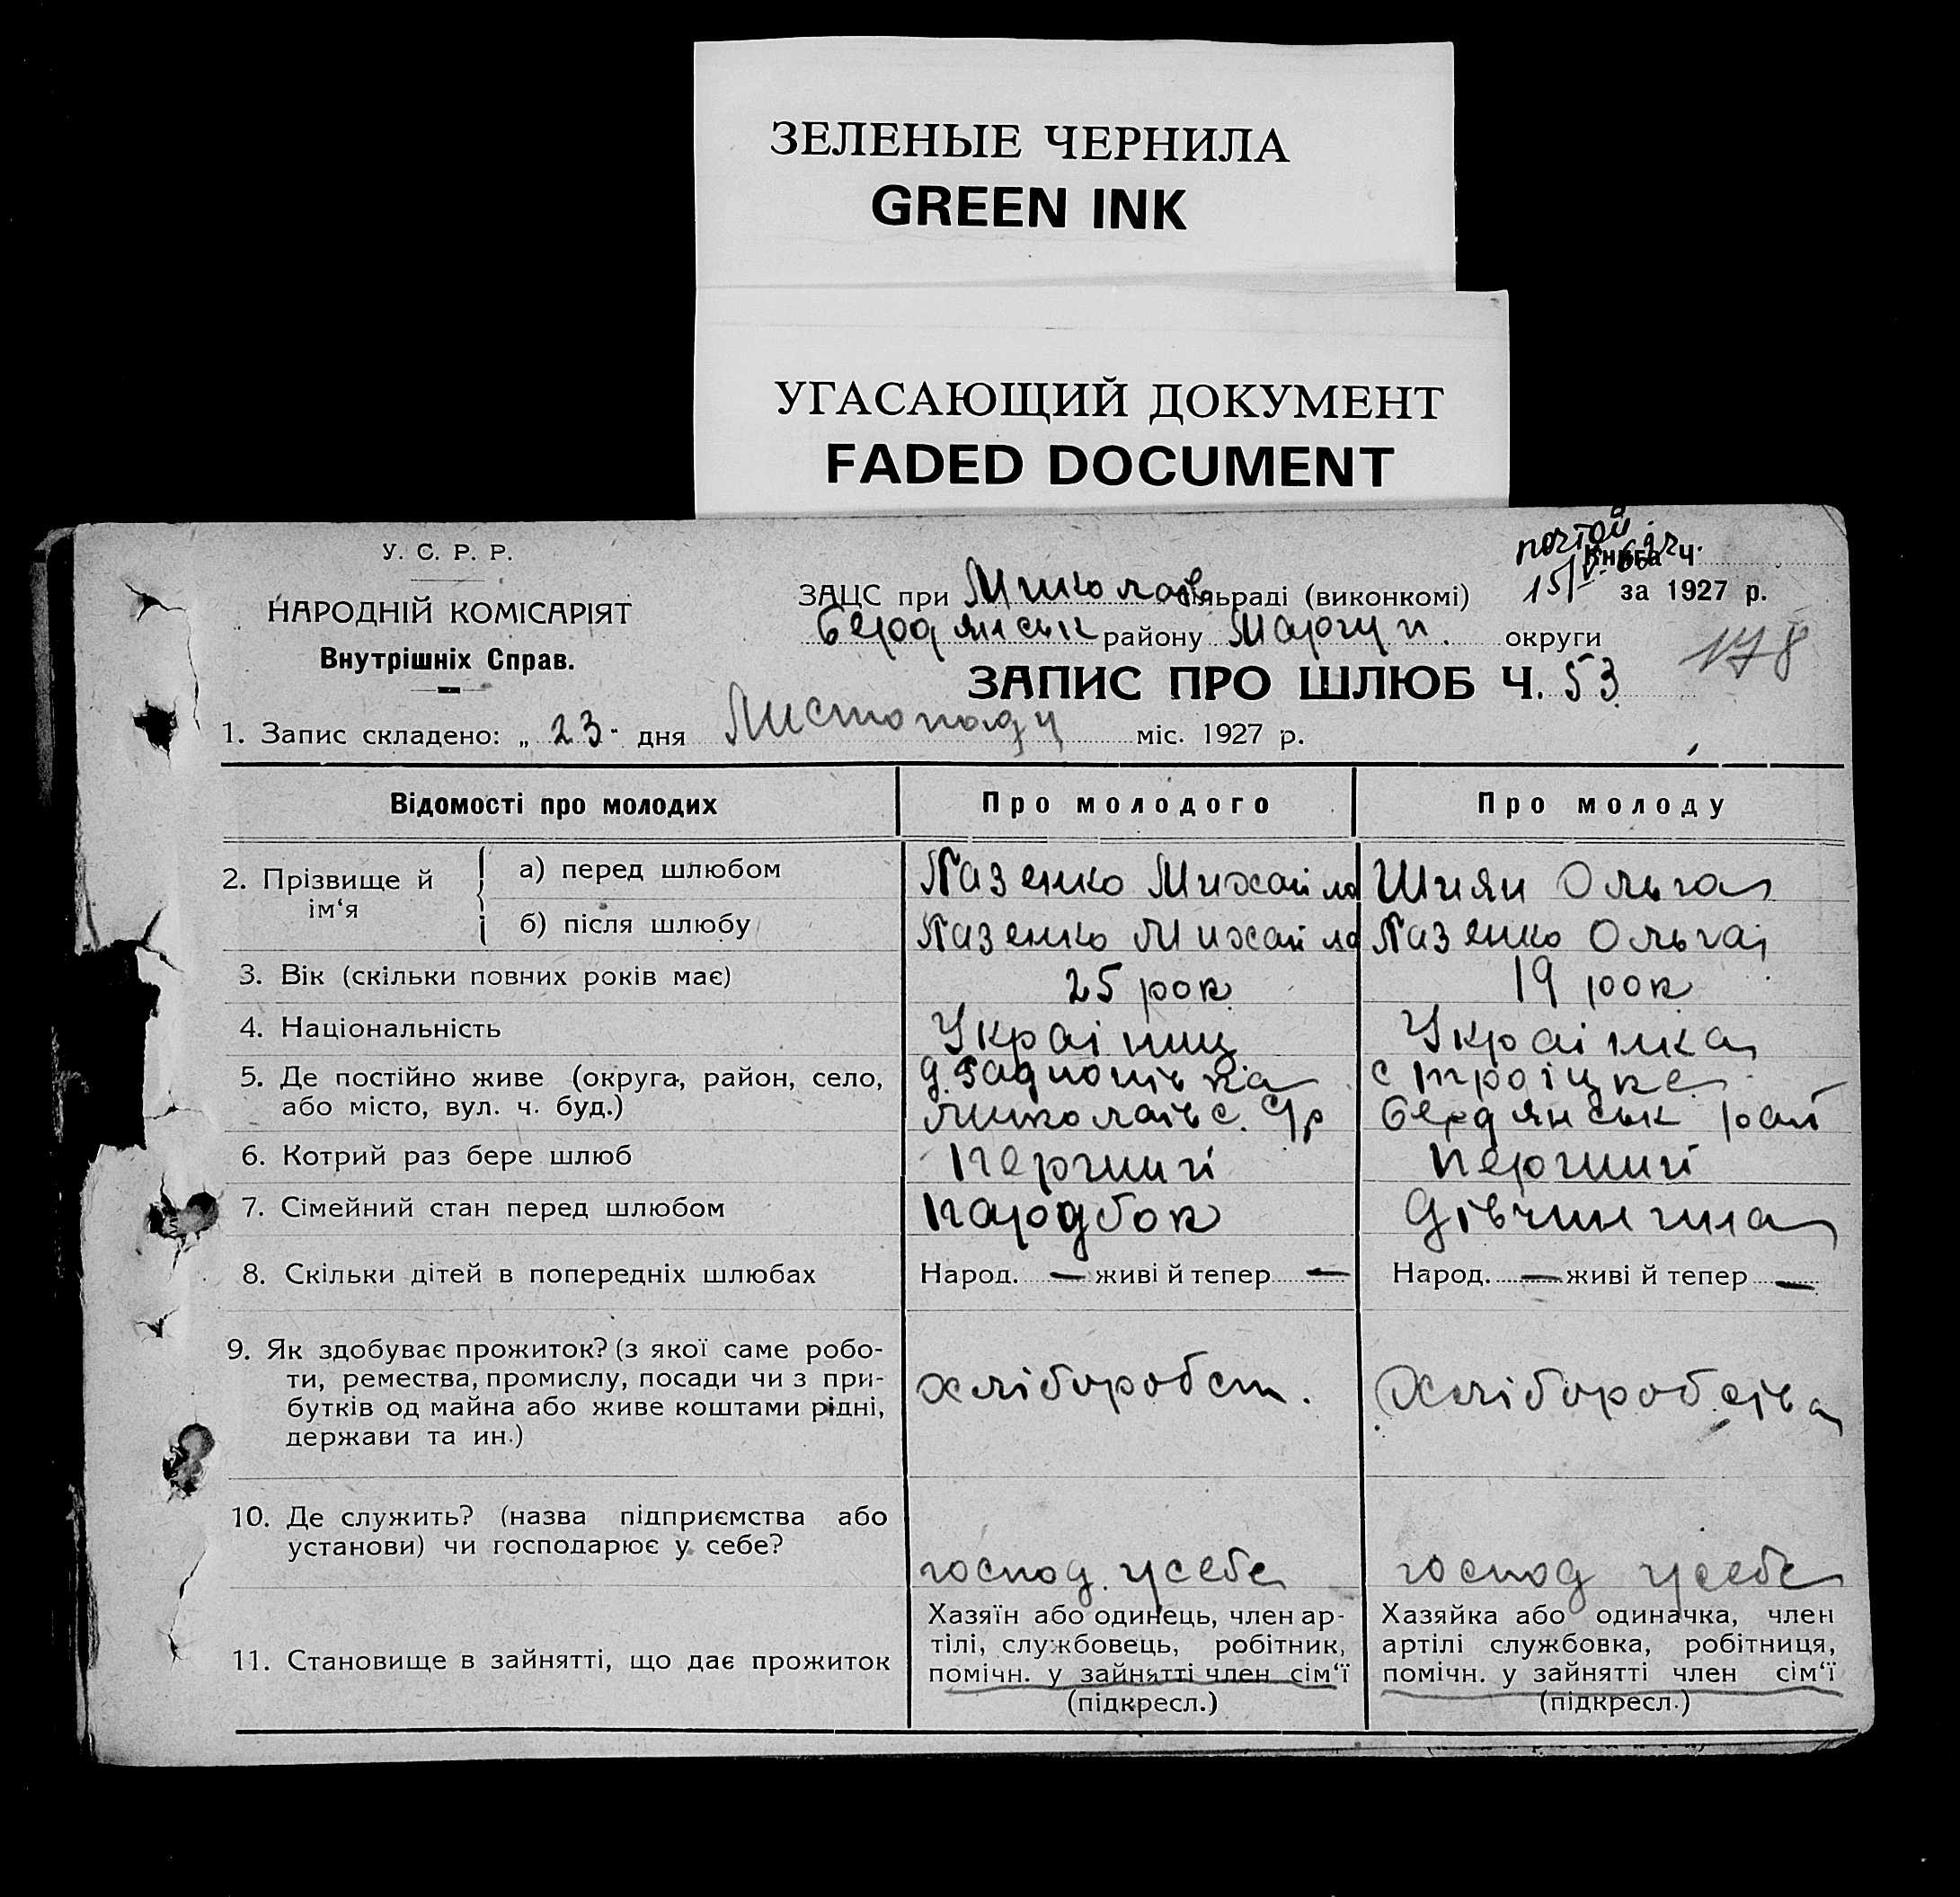 ЗЕЛЕНЫЕ ЧЕРНИЛА
GREEN INK
УГАСАЮЩИЙ ДОКУМЕНТ
FADED DOCUMENT
У. С. Р. Р.
НАРОДНІЙ КОМІСАРІЯТ
Внутрішніх Справ.
почтой
15/V-
Книга Ч.
за 1927 р.
ЗАЦС при Миколаїв сільраді (виконкомі)
Бердянськ району Маріуп. округи
178
ЗАПИС ПРО ШЛЮБ Ч. 53
1. Запис складено: „ 23 " дня Листопаду міс. 1927 р.
Відомості про молодих Про молодого Про молоду
2. Прізвище й ім‘я
а) перед шлюбом Лазенко Михайло Шиян Ольга
б) після шлюбу Лазенко Михайло Лазенко Ольга
3. Вік (скільки повних років має) 25 рок 19 рок
4. Національність Українц Українка
5. Де постійно живе (округа, район, село, д. с Троіцке
або місто, вул. ч. буд.) Миколаівс. С/р Бердянськ рай
6. Котрий раз бере шлюб перший перший
7. Сімейний стан перед шлюбом народбок дівчинина
8. Скільки дітей в попередніх шлюбах Народ. — живі й тепер — Народ. — живі й тепер —
9. Як здобуває прожиток? (з якої саме робо-
ти, ремества, промислу, посади чи з при-
бутків од майна або живе коштами рідні,
держави та ин.)
хліборобст. Хліборобсів
10. Де служить? (назва підприємства або
установи) чи господарює у себе?
господ. усебе господ усебе
11. Становище в зайнятті, що дає прожиток
Хазяїн або одинець, член ар-
тілі, службовець, робітник,
помічн. у зайнятті член сім‘ї
(підкресл.)
Хазяйка або одиначка, член
артілі службовка, робітниця,
помічн. у зайнятті член сім‘ї
(підкресл.)